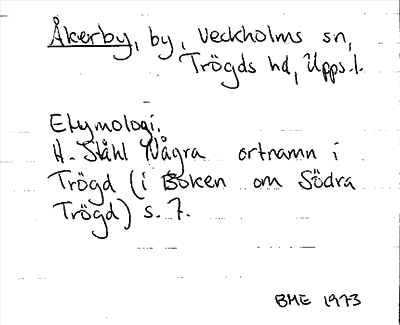 Åkerby, by, Veckholms sn,
Trögds hd, Upps. l.
Etymologi.
H. Ståhl Några ortnamn i
Trögd (i Boken om Södra
Trögd) s. 7.
BME 1973